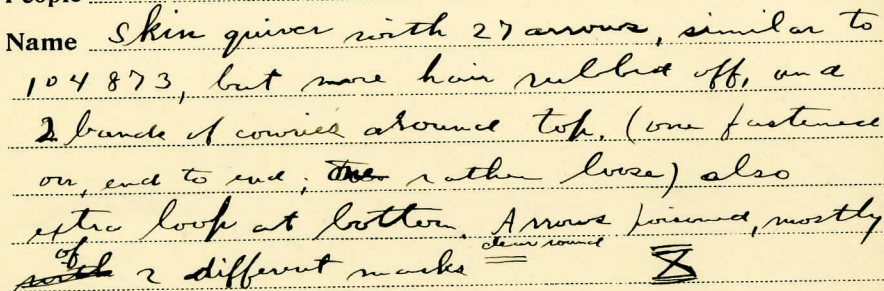 Name Skin quiver with 27 arrows, similar to
104873, but more hair rubbed off, and
2 bands of cowries around top, (one fastened
on, end to end; rather loose) also
extra loop at bottom. Arrows poisoned, mostly
of 2 different marks